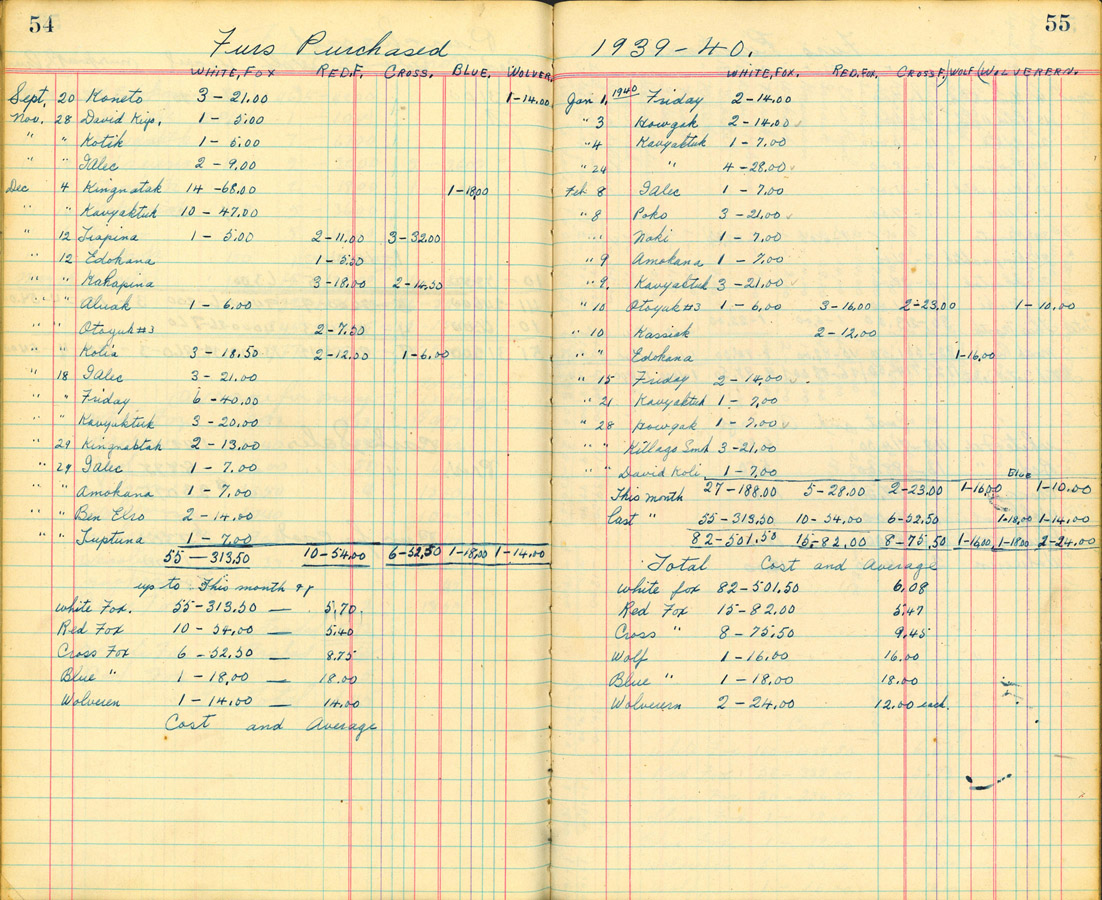 54
Furs Purchased
WHITE, FOX RED. F. CROSS. BLUE. WOLVER.
Sept, 20 Koneto 3 - 21.00 1 - 14.00
Nov. 28 David Kiyo, 1 - 5.00
" " Kotik 1 - 5.00
" " Ialec 2 - 9.00
Dec 4 Kingnatak 14 - 68.00 1 - 18.00
" " Kavyaktuk 10 - 47.00
" 12 Irapina 1 - 5.00 2 - 11.00 3 - 32.00
" 12 Edokana 1 - 5.50
" " Kakapina 3 - 18.00 2 - 14.50
" " Aluak 1 - 6.00
" " Otoyuk #3 2 - 7.50
" " Kolia 3 - 18.50 2 - 12.00 1 - 6.00
" 18 Ialec 3 - 21.00
" " Friday 6 - 40.00
" " Kavyaktuk 3 - 20.00
" 29 Kingnabtak 2 - 13.00
" 29 Ialec 1 - 7.00
" " Amokana 1 - 7.00
" " Ben Elso 2 - 14.00
" " Tuptuna 1 - 7.00
55 - 313.50 10 - 54.00 6 - 52.50 1 - 18.00 1 - 14.00
up to This month
White Fox. 55 - 313.50 — 5.70
Red Fox 10 - 54.00 — 5.40
Cross Fox 6 - 52.50 — 8.75
Blue " 1 - 18.00 — 18.00
Wolveren 1 - 14.00 — 14.00
Cost and Average
55
1939 - 40.
WHITE, FOX. RED, FOX. CROSS F. WOLF WOLVERERN.
Jan 1, 1940 Friday 2 - 14.00
" 3 Howgak 2 - 14.00
" 4 Kavyaktuk 1 - 7.00
" 24 " 4 - 28.00
Feb 8 Ialec 1 - 7.00
" 8 Poko 3 - 21.00
" Noki 1 - 7.00
" 9 Amokana 1 - 7.00
" 9. Kavyaktuk 3 - 21.00
" 10 Otoyuk #3 1 - 6.00 3 - 16.00 2 - 23.00 1 - 10.00
" 10 Kassiak 2 - 12.00
" " Edokana 1 - 16.00
" 15 Friday 2 - 14.00
" 21 Kavyaktuk 1 - 7.00
" 28 Howgak 1 - 7.00
" " Killago Smh 3 - 21.00
" " David Koli 1 - 7.00 BLUE
This month 27 - 188.00 5 - 28.00 2 - 23.00 1 - 16.00 1 - 10.00
Last " 55 - 313.50 10 - 54.00 6 - 52.50 1 - 18.00 1 - 14.00
82 - 501.50 15 - 82.00 8 - 75.50 1 - 16.00 1 - 18.00 2 - 24.00
Total Cost and Average
White fox 82 - 501.50 6.08
Red Fox 15 - 82.00 5.47
Cross " 8 - 75.50 9.45
Wolf 1 - 16.00 16.00
Blue " 1 - 18.00 18.00
Wolverern 2 - 24.00 12.00 each.